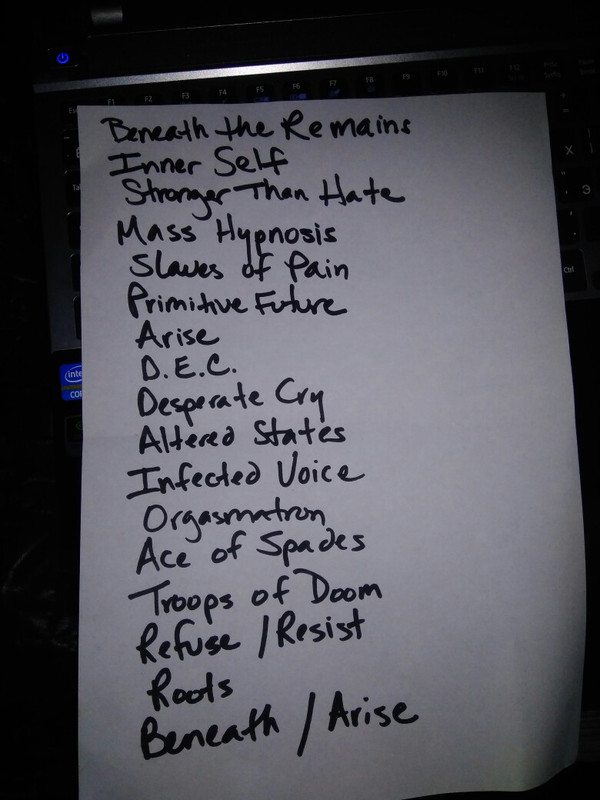 F1 F2 F3 F4 F5 F6 F7 F8 F9 F10 F11 F12
Beneath the Remains
Inner Self
Stronger Than Hate
Mass Hypnosis
Slaves of Pain
Primitive Future
Arise
D.E.C.
Desperate Cry
Altered States
Infected Voice
Orgasmatron
Ace of Spades
Troops of Doom
Refuse / Resist
Roots
Beneath / Arise
X
Э
Ctrl
intel